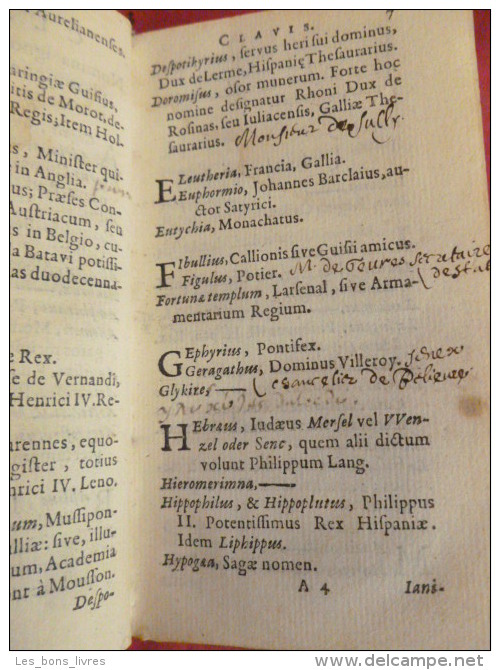 Aurelianenses.
aringiæ Guisius,
itis de Morot, de-
Regis; Item Hol-
s, Minister qui-
in Anglia.
us; Præses Con-
Austriacum, seu
s in Belgio, cu-
a Batavi potissi-
as duodecenna-
e Rex.
se de Vernandi,
Henrici IV. Re-
arennes, equo-
gister, totius
nrici IV. Leno.
um, Mussipon-
alliæ: sive, illu-
um, Academia
ont à Mousson.
Despo-
CLAVIS. 7
Despotihyrius, servus heri sui dominus,
Dux de Lerme, Hispanię Thesaurarius.
Doromisus, osor munerum. Forte hoc
nomine designatur Rhoni Dux de
Rosinas, seu Iuliacensis, Galliæ The-
saurarius. Monsieur de Sully.
ELeutheria, Francia, Gallia.
Euphormio, Johannes Barclaius, au-
ctor Satyrici.
Eutychia, Monachatus.
FIbullius, Callionis sive Guisii amicus.
Figulus, Potier. M. de Gevres secretaire
Fortunæ templum, Larsenal, sive Arma- d'estat
mentarium Regium.
GEphyrius, Pontifex.
Geragathus, Dominus Villeroy.
Glykizes, chancelier de
HEbræus, Iudæus Mersel vel VVen-
zel oder Senc, quem alii dictum
volunt Philippum Lang.
Hieromerimna,
Hippophilus, & Hippoplutus, Philippus
II. Potentissimus Rex Hispaniæ.
Idem Liphippus.
Hypogæa, Sagæ nomen.
A 4 Iani-
Les_bons_livres
www.delcampe.net